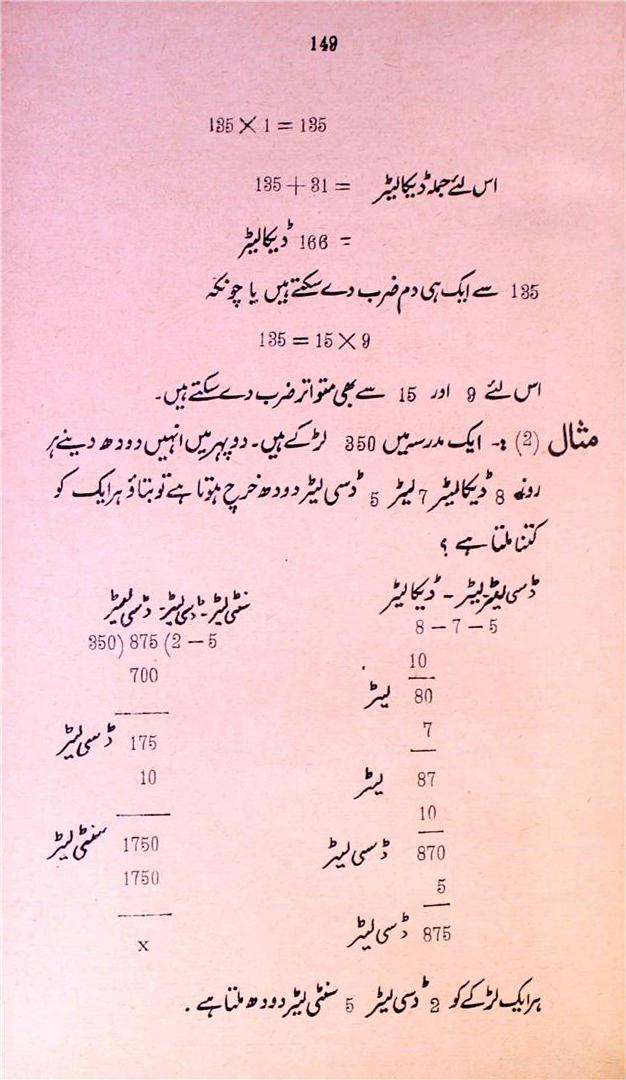 149
135 × 1 = 135
اس لئے جملہ ڈیکالیٹر = 135 + 31
= 166 ڈیکالیٹر
135 سے ایک ہی دم ضرب دے سکتے ہیں یا چونکہ
135 = 15 × 9
اس لئے 9 اور 15 سے بھی متواتر ضرب دے سکتے ہیں۔
مثال (2) :- ایک مدرسہ میں 350 لڑکے ہیں۔ دوپہر میں انہیں دودھ دینے ہر
روز 8 ڈیکالیٹر 7 لیٹر 5 ڈسی لیٹر دودھ خرچ ہوتا ہے تو بتاؤ ہر ایک کو
کتنا ملتا ہے ؟
ڈسی لیٹر - لیٹر - ڈیکالیٹر
8 – 7 – 5
10
80 لیٹر
7
87 لیٹر
10
870 ڈسی لیٹر
5
875 ڈسی لیٹر
سنٹی لیٹر - ڈسی لیٹر - ڈسی لیٹر
350) 875 (2 – 5
700
175 ڈسی لیٹر
10
1750 سنٹی لیٹر
1750
x
ہر ایک لڑکے کو 2 ڈسی لیٹر 5 سنٹی لیٹر دودھ ملتا ہے .